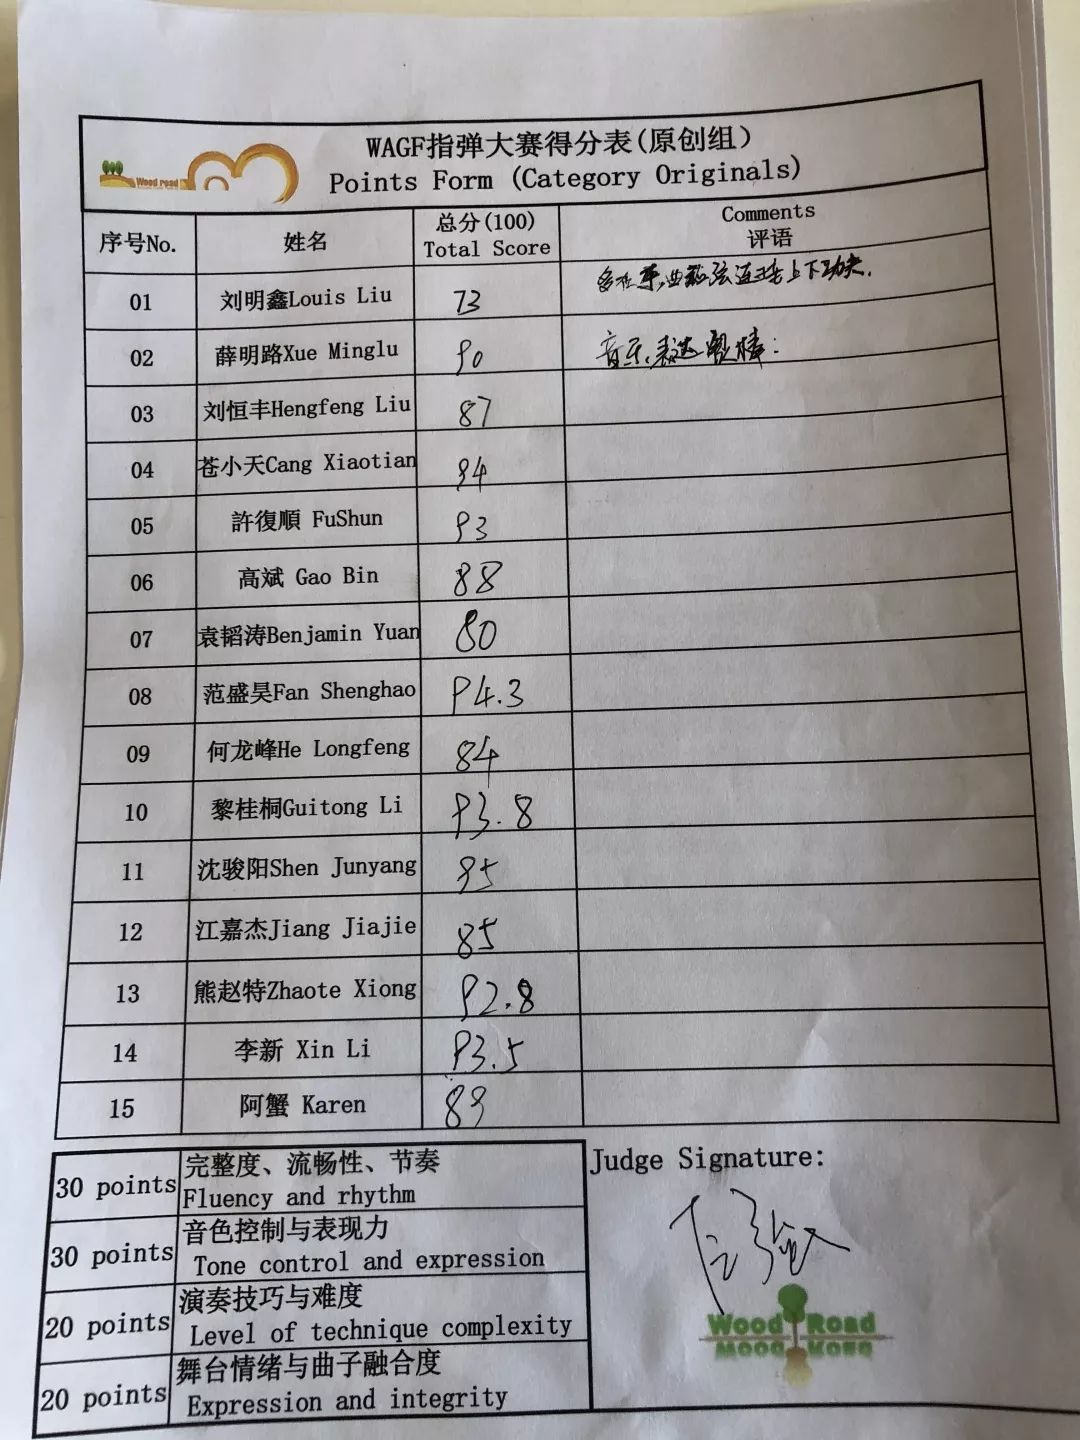 WAGF指弹大赛得分表(原创组)
Wood road
Points Form (Category Originals)
序号No. 姓名 总分(100) Total Score Comments 评语
01 刘明鑫Louis Liu 73 多在乐曲和弦连接上下功夫.
02 薛明路Xue Minglu 90 音乐表达很棒:
03 刘恒丰Hengfeng Liu 87
04 苍小天Cang Xiaotian 84
05 許復順 FuShun 93
06 高斌 Gao Bin 88
07 袁韬涛Benjamin Yuan 80
08 范盛昊Fan Shenghao 94.3
09 何龙峰He Longfeng 84
10 黎桂桐Guitong Li 93.8
11 沈骏阳Shen Junyang 85
12 江嘉杰Jiang Jiajie 85
13 熊赵特Zhaote Xiong 92.8
14 李新 Xin Li 93.5
15 阿蟹 Karen
30 points 完整度、流畅性、节奏
Fluency and rhythm
30 points 音色控制与表现力
Tone control and expression
20 points 演奏技巧与难度
Level of technique complexity
20 points 舞台情绪与曲子融合度
Expression and integrity
Judge Signature:
Wood Road